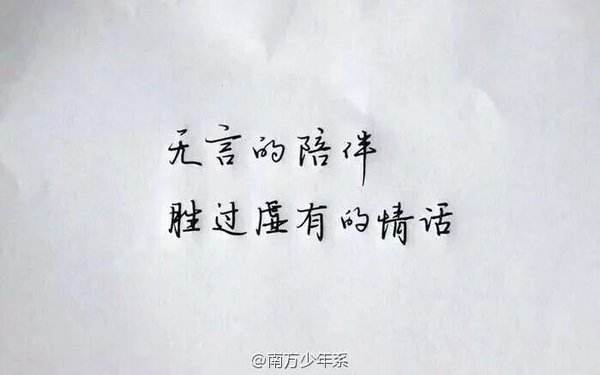 无言的陪伴
胜过虚有的情话
@南方少年系